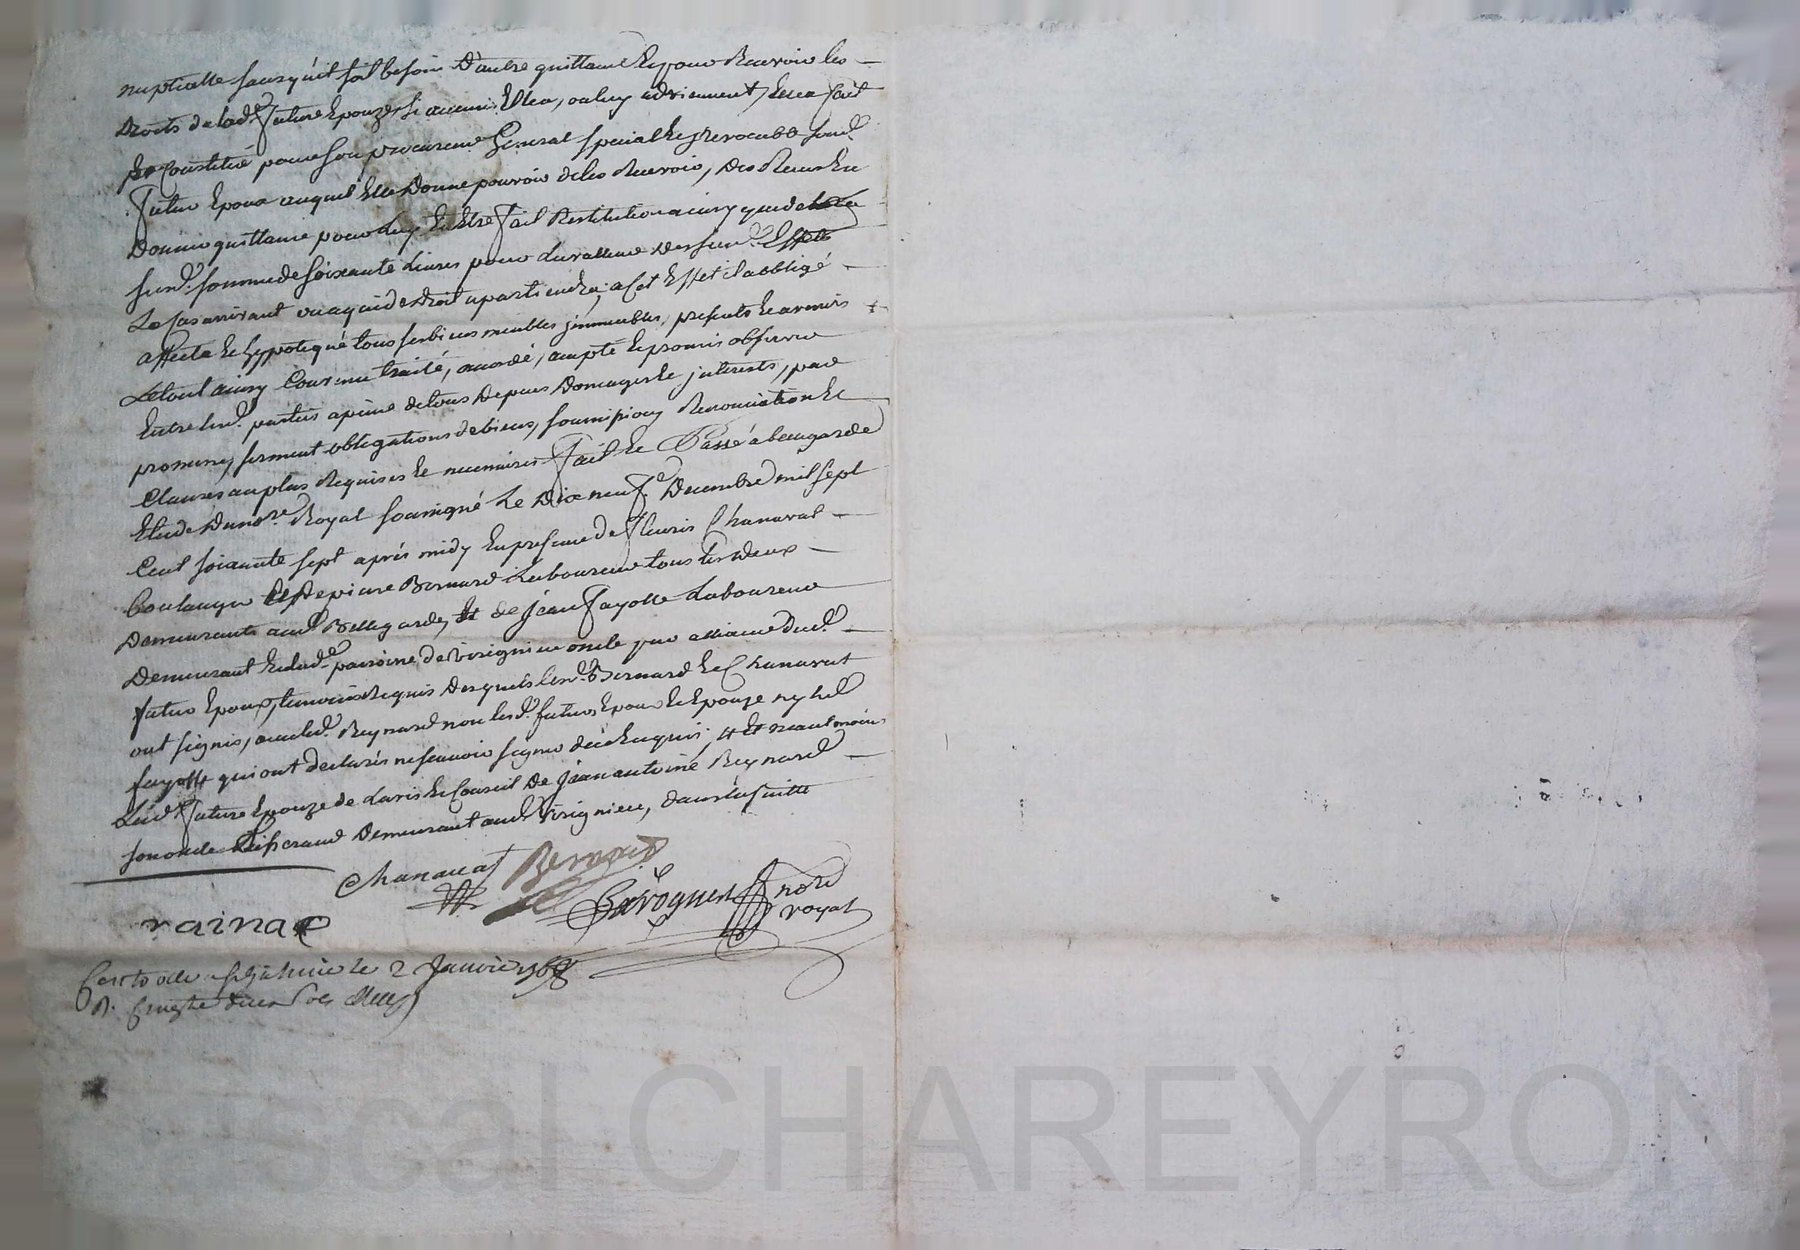 nuptialle sans qu'il soit besoin d'autre quittance Et pour Recevoir les
droits de lad.e future Epouze si aucuns Elle a, ou luy adviennent, Elle a fait
Et Constitué pour son procureur General special Et Irevocable sond.
futur Epoux auquel Elle donne pouvoir de les Recevoir, des Receus En
donner quittance pour luy En Etre fait Restitution ainsy que de la
susd. somme de soixante Livres pour la valleur dessusd. Effets
Le Cas arrivant ou a qui de droit apartiendra; a Cet Effet il a obligé
affecté Et hypotequé tous ses biens meubles immeubles, presents Et avenir
Le tout ainsy Convenu traité, acordé, accepté Et promis observer
Entre lesd. parties a peine de tous Depens Domages Et interests, par
promesse, serment obligations de biens, soumission Renonciation Et
Clauses au plus Requises Et necessaires fait Et Passé a beaugarde
Etude du no.re Royal soussigné Le Dix neuf.e Decembre mil sept
Cent soixante sept après midy En presence de fleuris Chanavat
boulanger Et de piere Bernard Laboureur tous les deux
demeurants aud. Bellegarde, Et de jean fayolle Laboureur
demeurant En lad.e paroisse de Virignieu oncle par alliance dud.
futur Epoux, temoins Requis desquels lesd. Bernard Et Chanavat
ont signés, avec led. Reynard non lesd. futurs Epoux Et Epouze ny led.
fayolle qui ont declarés ne scavoir signer de ce Enquis; Et neantmoins
Lad. future Epouze de L'avis Et Conseil de jean antoine Reynard
son oncle demeurant aud. Virignieu, dans la suitte
Chanavat Bernard no.re
royal
rainar
2 Janvier 1768